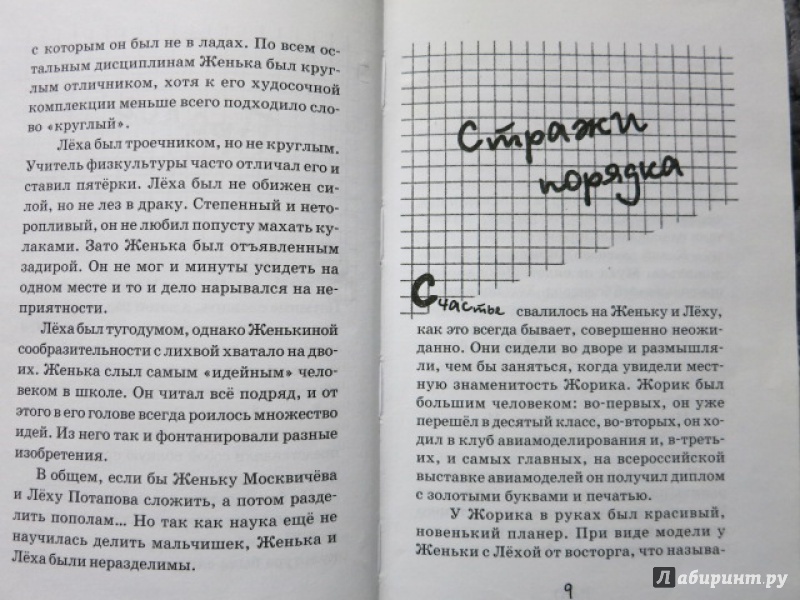 с которым он был не в ладах. По всем ос-
тальным дисциплинам Женька был круг-
лым отличником, хотя к его худосочной
комплекции меньше всего подходило сло-
во «круглый».
Лёха был троечником, но не круглым.
Учитель физкультуры часто отличал его и
ставил пятёрки. Лёха был не обижен си-
лой, но не лез в драку. Степенный и нето-
ропливый, он не любил попусту махать ку-
лаками. Зато Женька был отъявленным
задирой. Он не мог и минуты усидеть на
одном месте и то и дело нарывался на не-
приятности.
Лёха был тугодумом, однако Женькиной
сообразительности с лихвой хватало на дво-
их. Женька слыл самым «идейным» чело-
веком в школе. Он читал всё подряд, и от
этого в его голове всегда роилось множество
идей. Из него так и фонтанировали разные
изобретения.
В общем, если бы Женьку Москвичёва
и Лёху Потапова сложить, а потом разде-
лить пополам... Но так как наука ещё не
научилась делить мальчишек, Женька и
Лёха были неразделимы.
Стражи
порядка
Счастье свалилось на Женьку и Лёху,
как это всегда бывает, совершенно неожи-
данно. Они сидели во дворе и размышля-
ли, чем бы заняться, когда увидели мест-
ную знаменитость Жорика. Жорик был
большим человеком: во-первых, он уже
перешёл в десятый класс, во-вторых, он хо-
дил в клуб авиамоделирования и, в-треть-
их, и самых главных, на всероссийской
выставке авиамоделей он получил диплом
с золотыми буквами и печатью.
У Жорика в руках был красивый,
новенький планер. При виде модели у
Женьки с Лёхой от восторга, что называ-
9
Лабиринт.ру